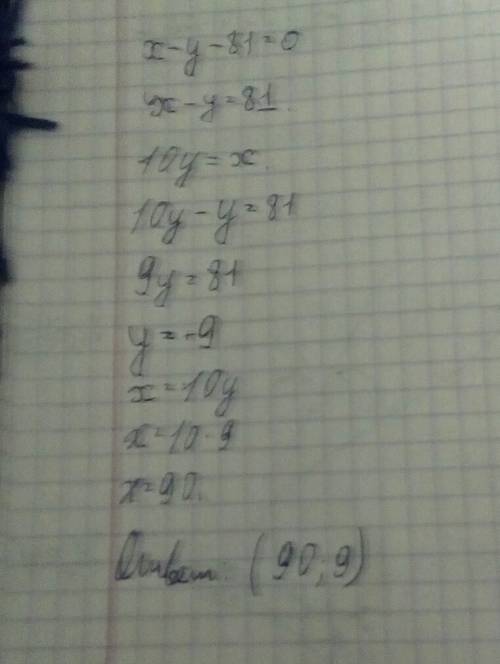 x-y-81=0
x-y=81.
10y=x.
10y-y=81
9y=81
y=-9
x=10y
x=10·9
x=90.
Ответ: (90;9)